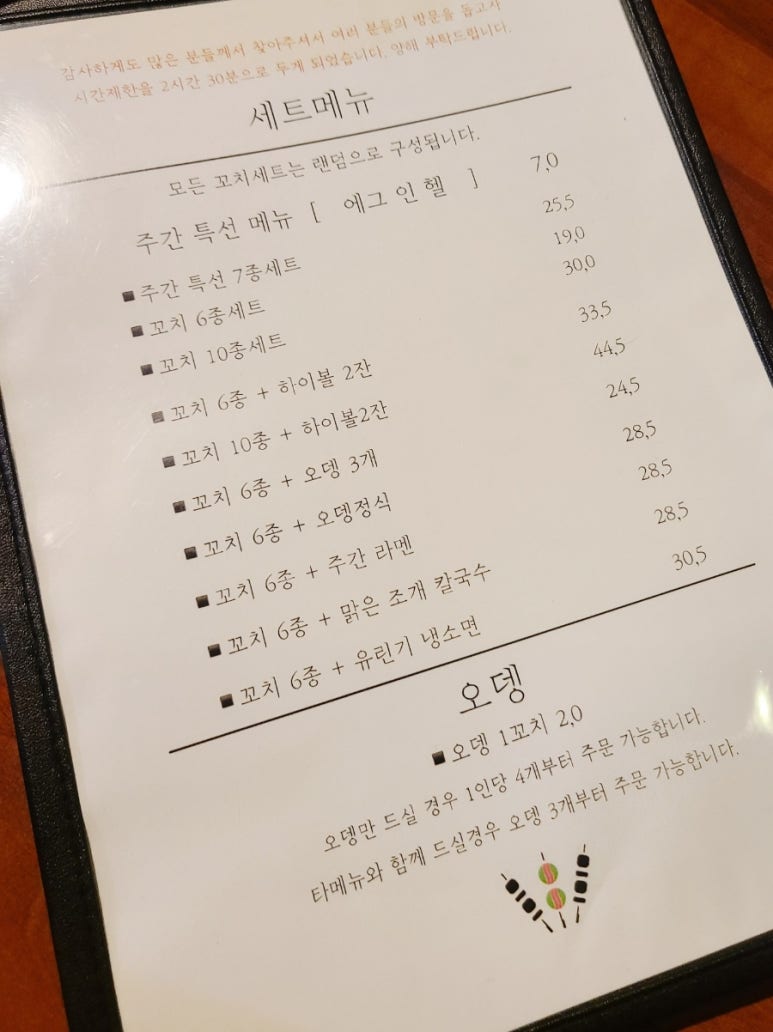 감사하게도 많은 분들께서 찾아주셔서 여러 분들의 방문을 돕고자
시간제한을 2시간 30분으로 두게 되었습니다. 양해 부탁드립니다.
세트메뉴
모든 꼬치세트는 랜덤으로 구성됩니다.
주간 특선 메뉴 [ 에그 인 헬 ] 7,0
■ 주간 특선 7종세트 25,5
■ 꼬치 6종세트 19,0
■ 꼬치 10종세트 30,0
■ 꼬치 6종 + 하이볼 2잔 33,5
■ 꼬치 10종 + 하이볼2잔 44,5
■ 꼬치 6종 + 오뎅 3개 24,5
■ 꼬치 6종 + 오뎅정식 28,5
■ 꼬치 6종 + 주간 라멘 28,5
■ 꼬치 6종 + 맑은 조개 칼국수 28,5
■ 꼬치 6종 + 유린기 냉소면 30,5
오뎅
■ 오뎅 1꼬치 2,0
오뎅만 드실 경우 1인당 4개부터 주문 가능합니다.
타메뉴와 함께 드실경우 오뎅 3개부터 주문 가능합니다.